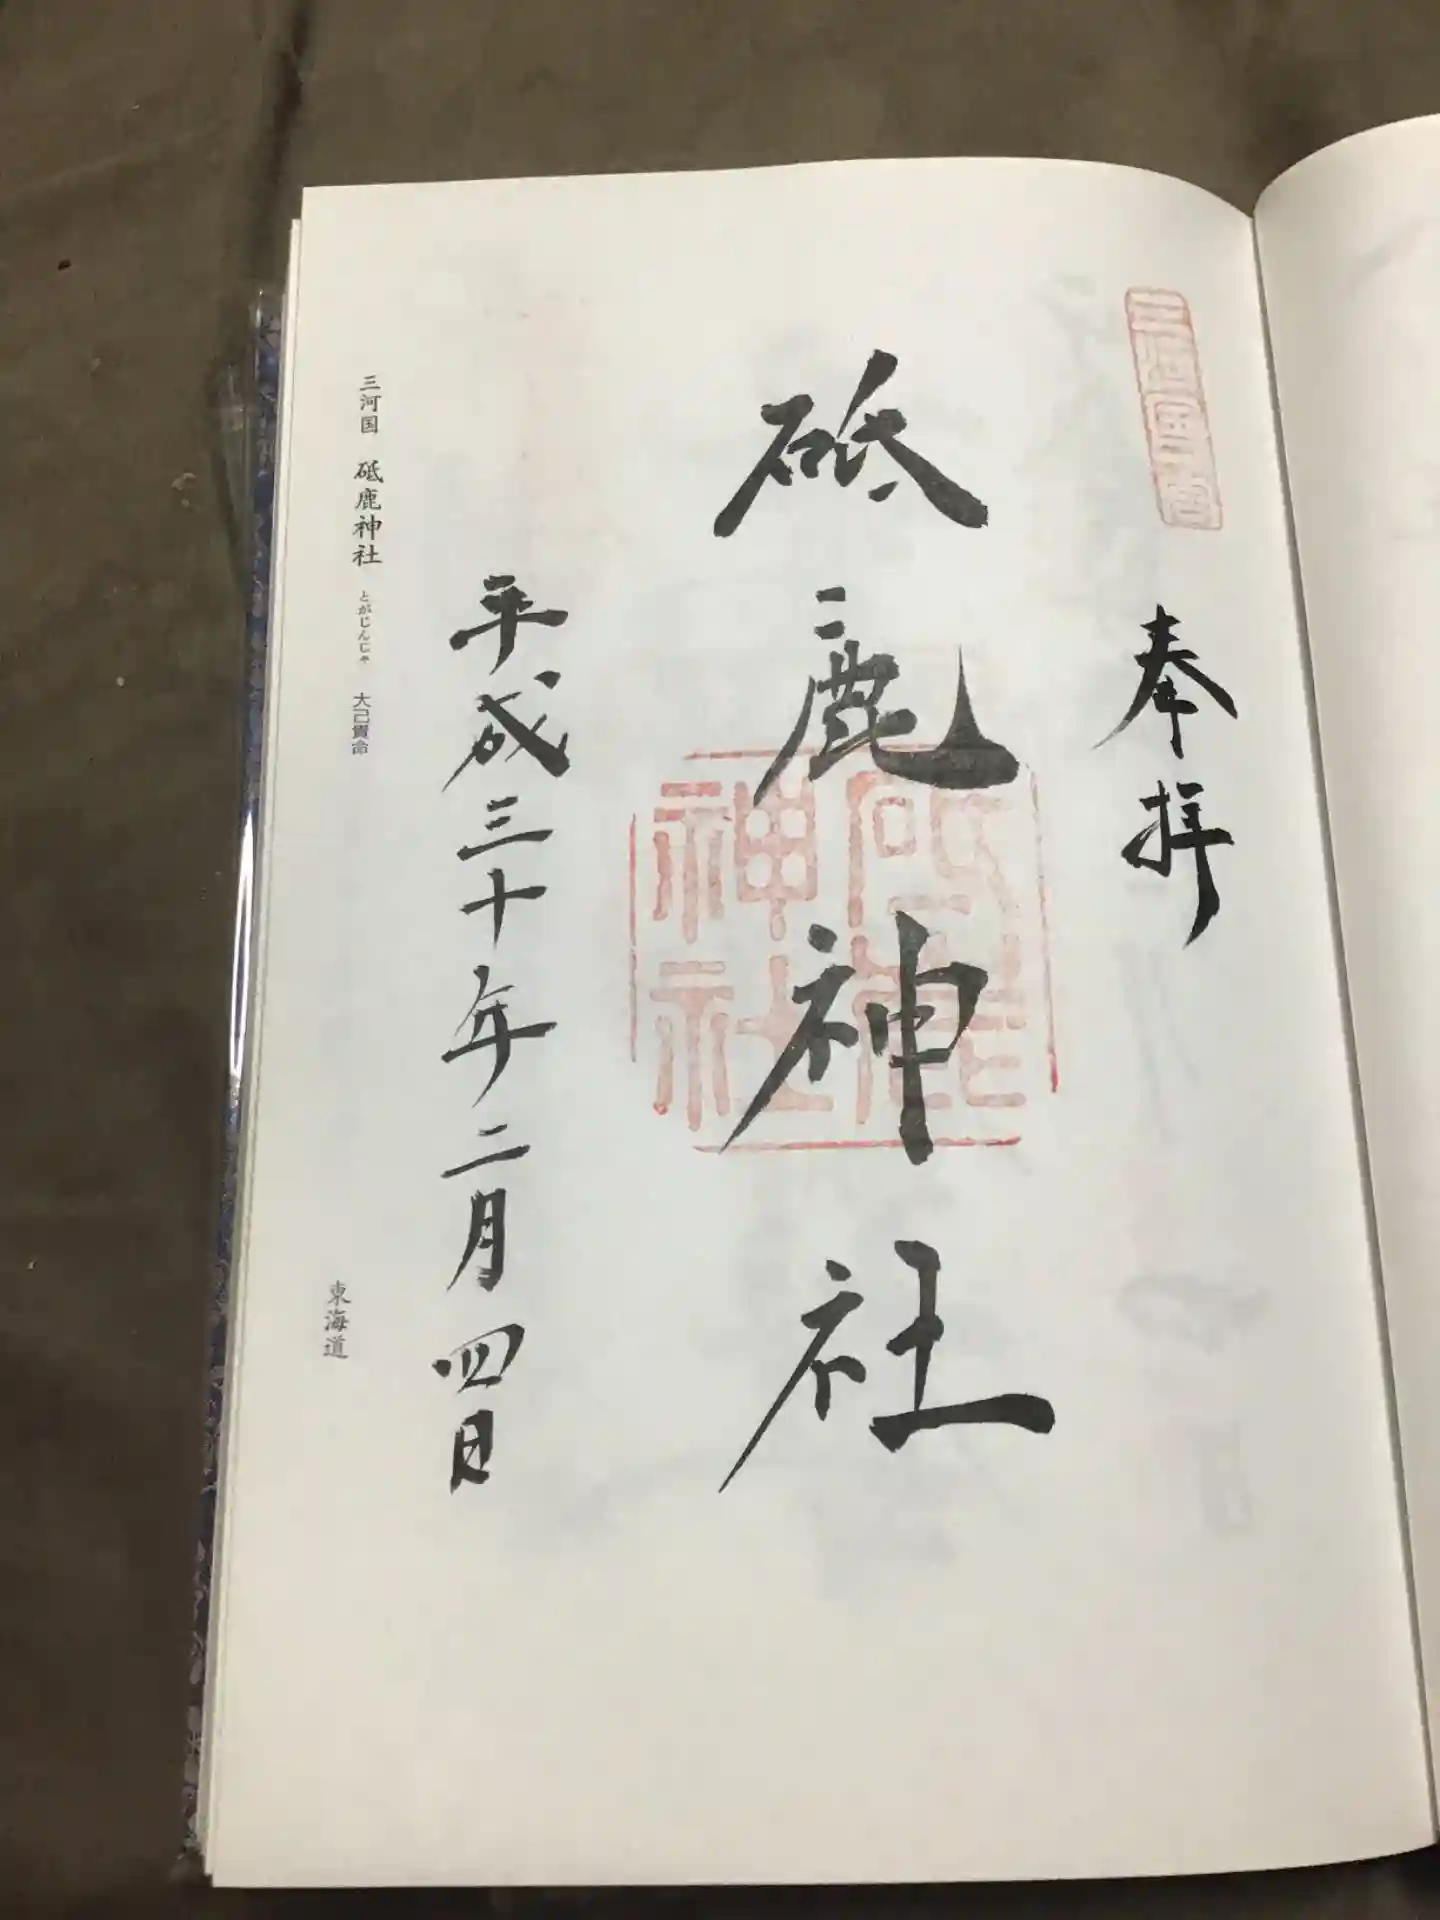 三河国一宮
奉拝
砥鹿神社
砥鹿神社
平成三十年二月四日
三河国 砥鹿神社 とがじんじゃ 大己貴命
東海道